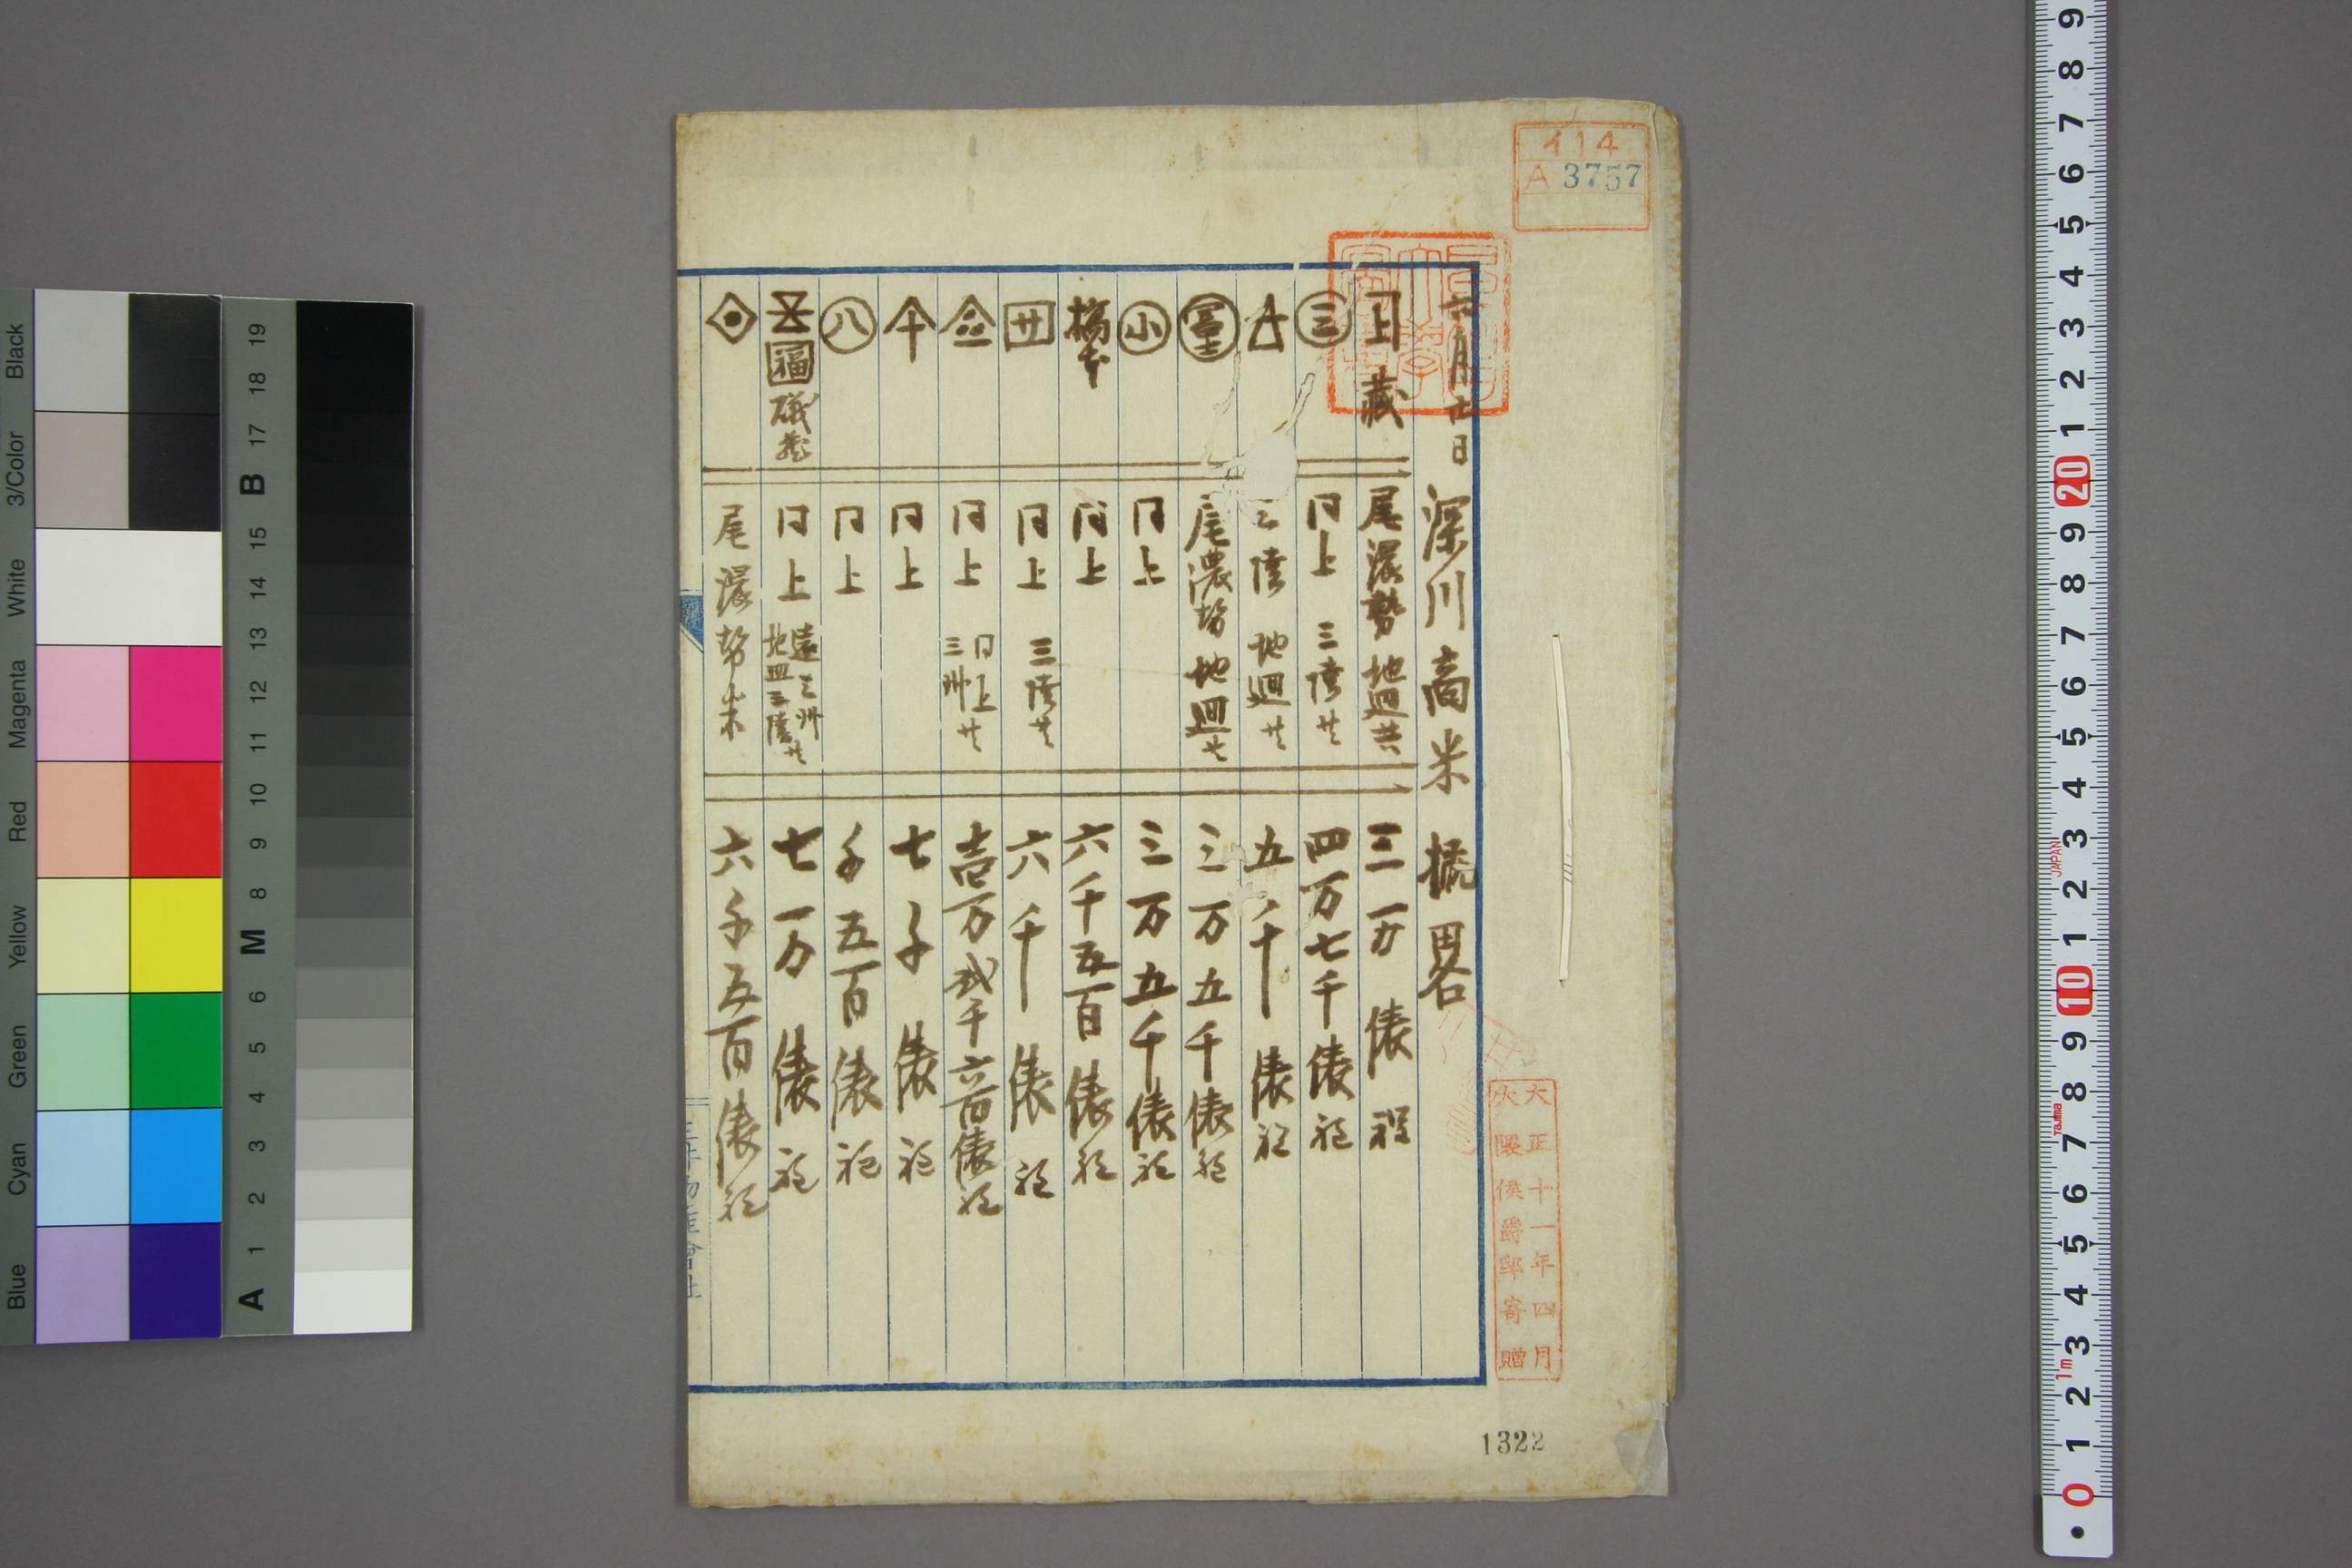 イ14
A 3757
六月廿日 深川商米概畧
上 藏 尾濃勢 地廻共 三万俵程
三 同上 三陸共 四万七千俵程
三陸 地廻共 五千俵程
富士 尾濃勢 地廻共 三万五千俵程
小 同上 三万五千俵程
橋本 同上 六千五百俵程
廿 同上 三陸共 六千俵程
同上 同上 三州共 壱万弐千六百俵程
同上 七千俵程
八 同上 千五百俵程
五 福 磯藏 同上 遠三州 地廻三陸共 七万俵程
尾濃勢米 六千五百俵程
大正十一年四月
大隈侯爵邸寄贈
1322
Black
3/Color
White
Magenta
Red
Yellow
Green
Cyan
Blue
19
18
17
B
16
15
14
13
12
11
10
9
8
M
7
6
5
4
3
2
A
1
9
8
7
6
5
4
3
2
1
20
9
8
7
6
5
4
3
JAPAN
2
1
10
9
8
Tajima
7
6
5
4
3
1m
2
1
0